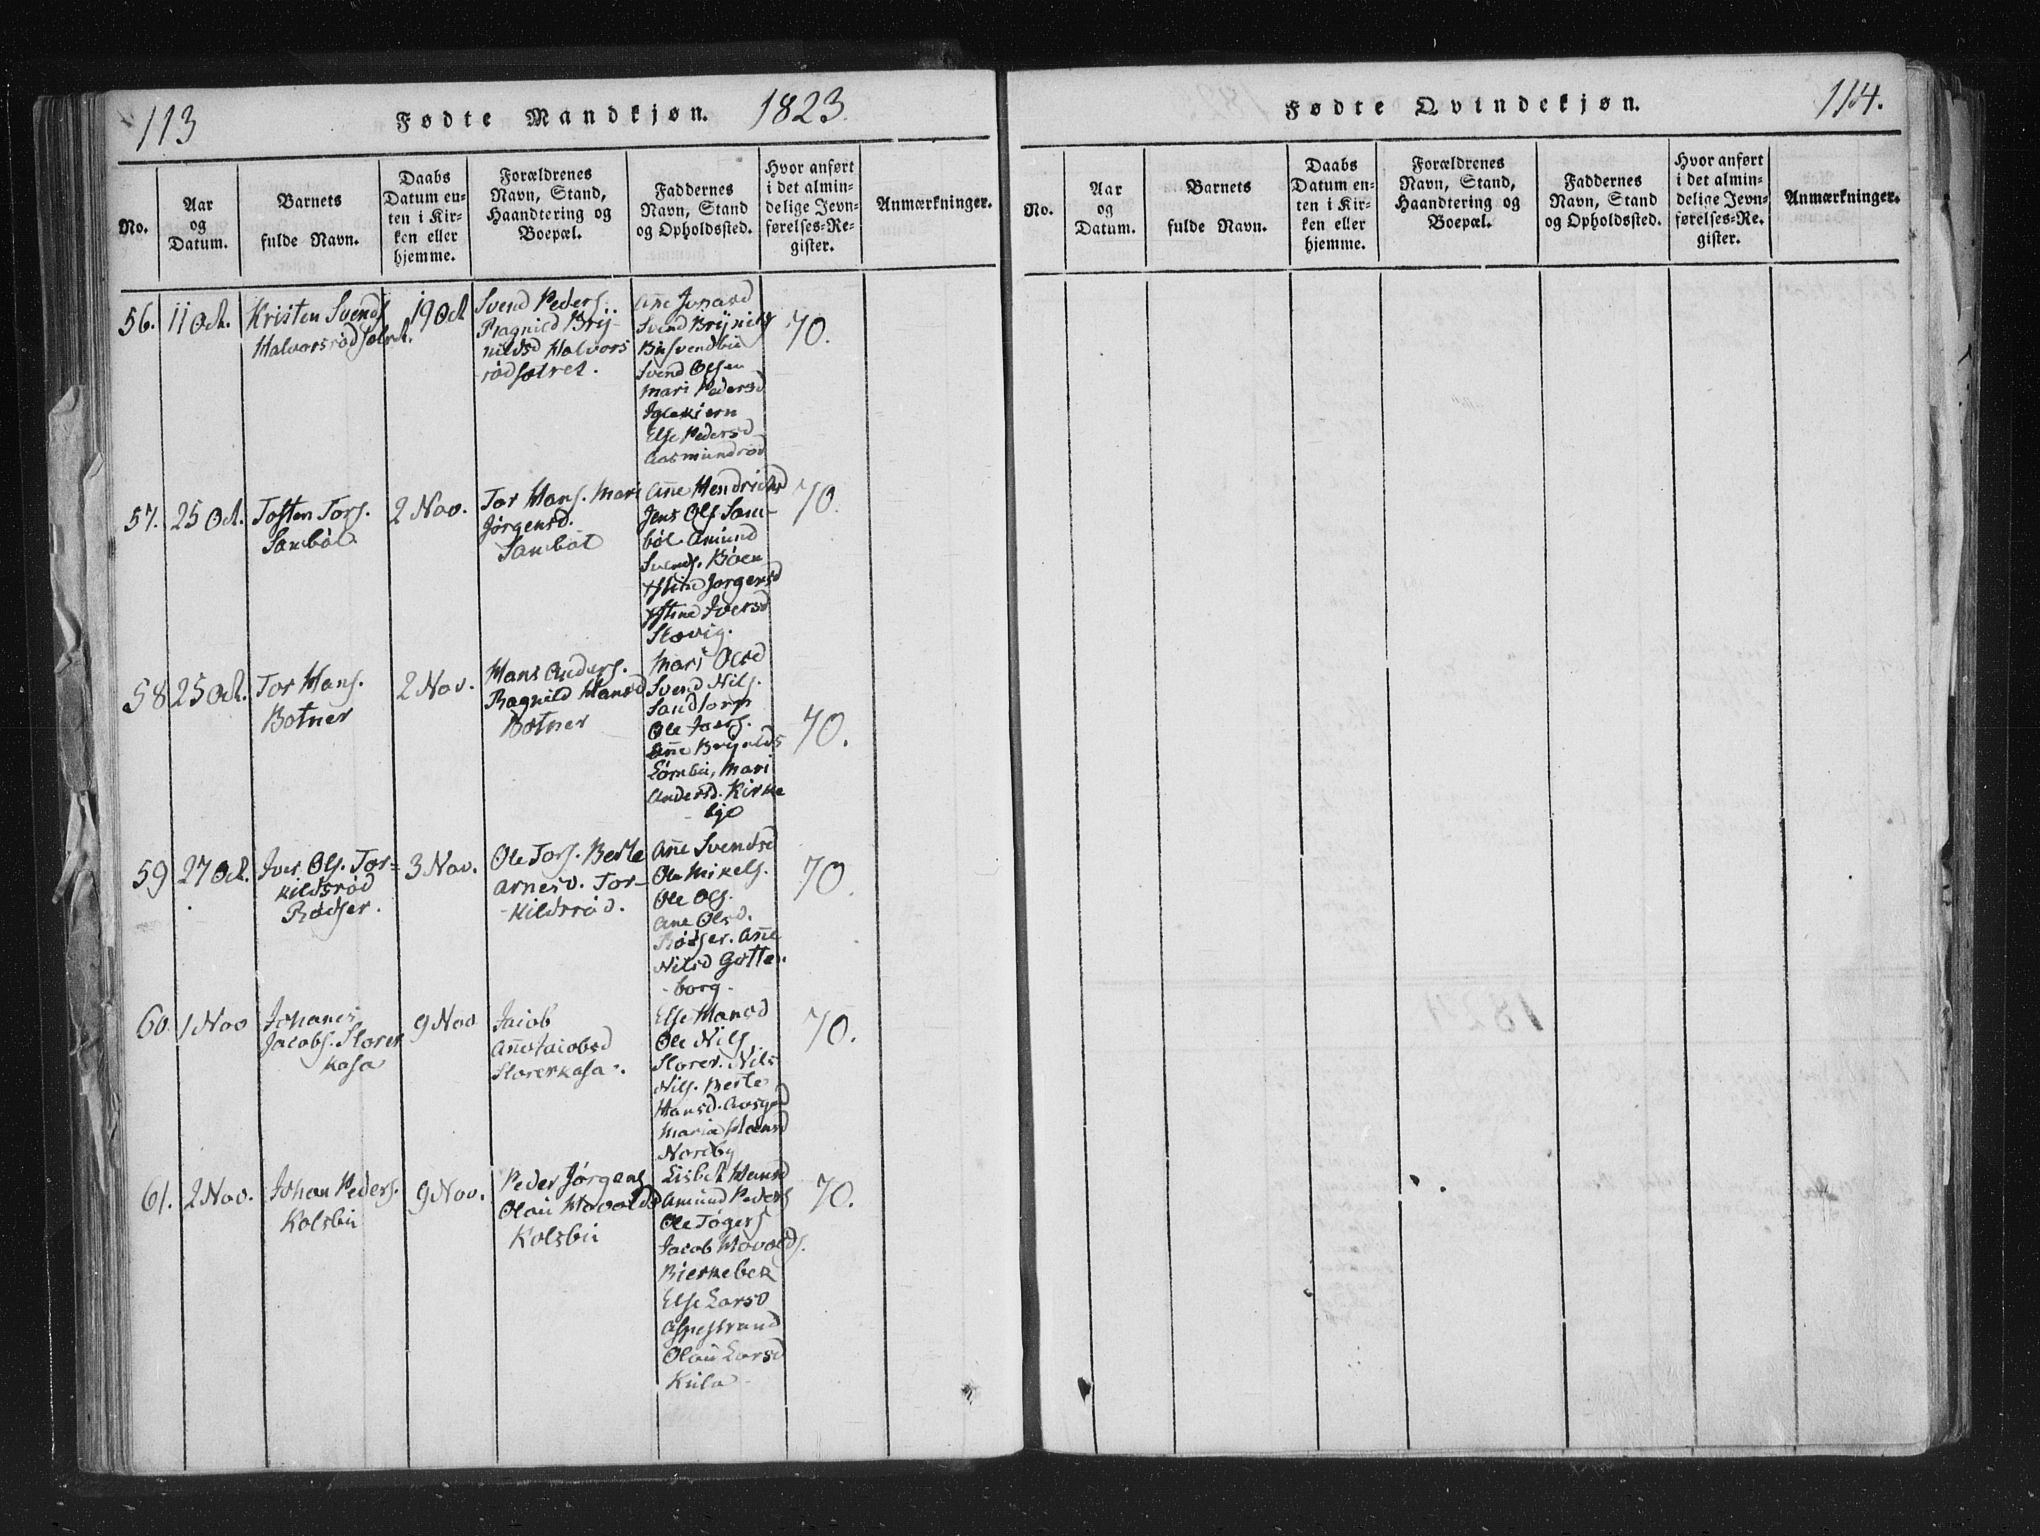 113
Fødte Mandkjøn.
1823.
No.
Aar
og
Datum.
Barnets
fulde Navn.
Daabs
Datum en-
ten i Kir-
ken eller
hjemme.
Forældrenes
Navn, Stand,
Haandtering og
Boepæl.
Faddernes
Navn, Stand
og Opholdssted.
Hvor anført
i det almin-
delige Jevn-
førelses-Re-
gister.
Anmærkninger.
56.
11 Oct.
Kristen Svends
Halvorsrødsalret.
19 Oct
Svend Peders.
Ragnild Bry-
nildsd Halvors
rødsalret.
Añe Jonasd
Svend Brynilds
Svend Olsen
Mari Pedersd
Igletiern
Else Pedersd
Aasmundrød
70.
57.
25 Oct.
Tosten Tors.
Sanbøl
2 Nov.
Tor Hans. Mari
Jørgensd.
Sanbøl
Añe Hendriksd
Jens Ols San-
bøl Amund
Svends. Bøen
Jørgensd
Iversd
Slevig.
70.
58
25 Oct.
Tor Hans.
Botner
2 Nov.
Hans Anders.
Ragnild Hansd
Botner
Mari Olsd
Svend Nils.
Sandtorp
Ole Jacobs.
Añe Brynilds
Lörnbü, Mari
Andersd. Kirke
bye
70.
59
27 Oct.
Iver Ols. Tor-
kildsrød
Rødser.
3 Nov.
Ole Tors. Berte
Arnesd. Tor-
kildsrød.
Añe Svendsd
Ole Mikels.
Ole Ols.
Ane Olsd.
Rødser. Añe
Nilsd Gotte-
borg.
70.
60.
1 Nov
Johanes
Jacobs. Storer
kasa
9 Nov
Jacob
Añe Jacobsd
Storerkasa.
Else Hansd
Ole Nils
Storer. Nils
Nils. Berte
Hansd. Aasgrd
Maria Hansd
Nordby
70.
61.
2 Nov.
Johan Peders.
Kolsbü
9 Nov.
Peder Jørgens
Olaü Havolds
Kolsbü
Lisbet Hansd
Amund Peders
Ole Tøgers
Jacob Havolds.
Bierkebek
Else Larsd
Aspestrand
Olaü Larsd
Küla
70.
114.
Fødte Qvindekjøn.
No.
Aar
og
Datum.
Barnets
fulde Navn.
Daabs
Datum en-
ten i Kir-
ken eller
hjemme.
Forældrenes
Navn, Stand,
Haandtering og
Boepæl.
Faddernes
Navn, Stand
og Opholdssted.
Hvor anført
i det almin-
delige Jevn-
førelses-Re-
gister.
Anmærkninger.